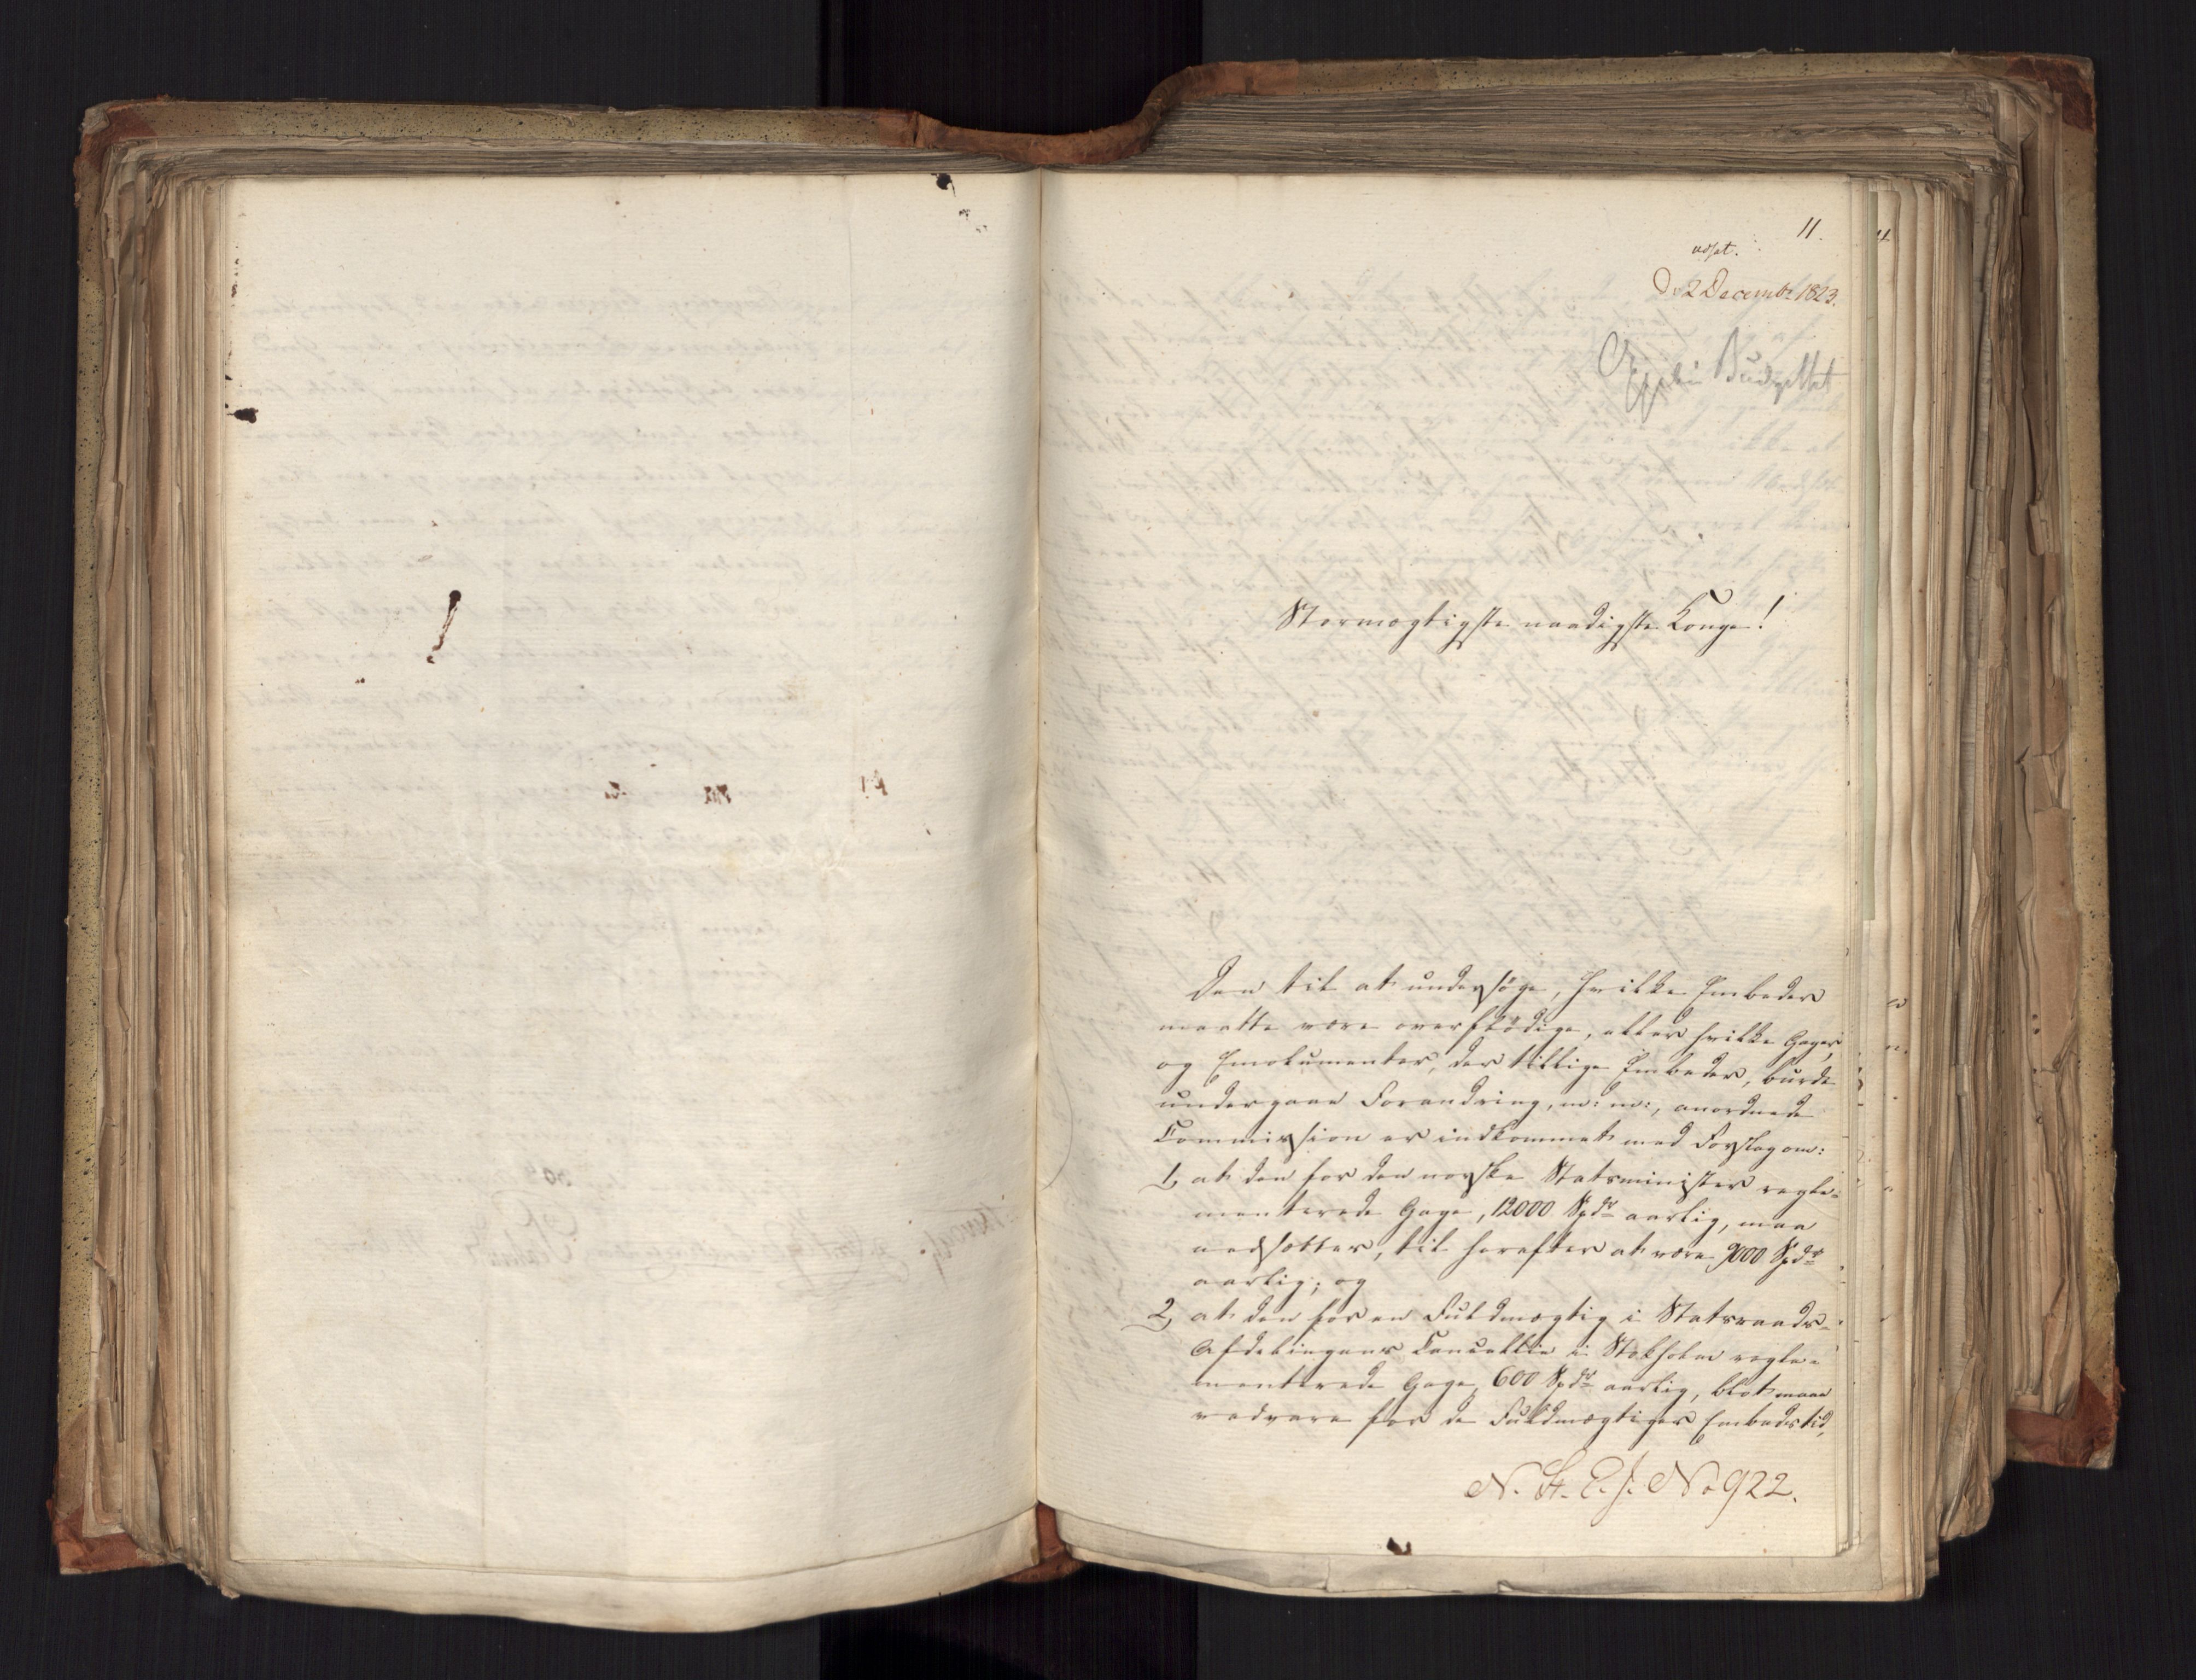 11.
udsat.
D. 2 Decembr 1823.
Budgettet
Stormægtigste naadigste Konge!
Den til at undersøge, hvilke Embeder
maatte være overflødige, eller hvilke Gager
og Emolumenter, der tillige Embeder, burde
undergaae Forandring, m: m:, anordnede
Commission er indkommet med Forslag om:
1, at den for den norske Statsminister regle-
menterede Gage, 12000 Spdr aarlig, maa
nedsættes, til herefter at være 9000 Spdr
aarlig; og
2, at den for en Fuldmægtig i Statsraads-
Afdelingens Cancellie i Stokholm regle-
menterede Gage, 600 Spdr aarlig, blot maae
vedvare for de Fuldmægtiges Embedstid,
N. St. E. J. No 922.